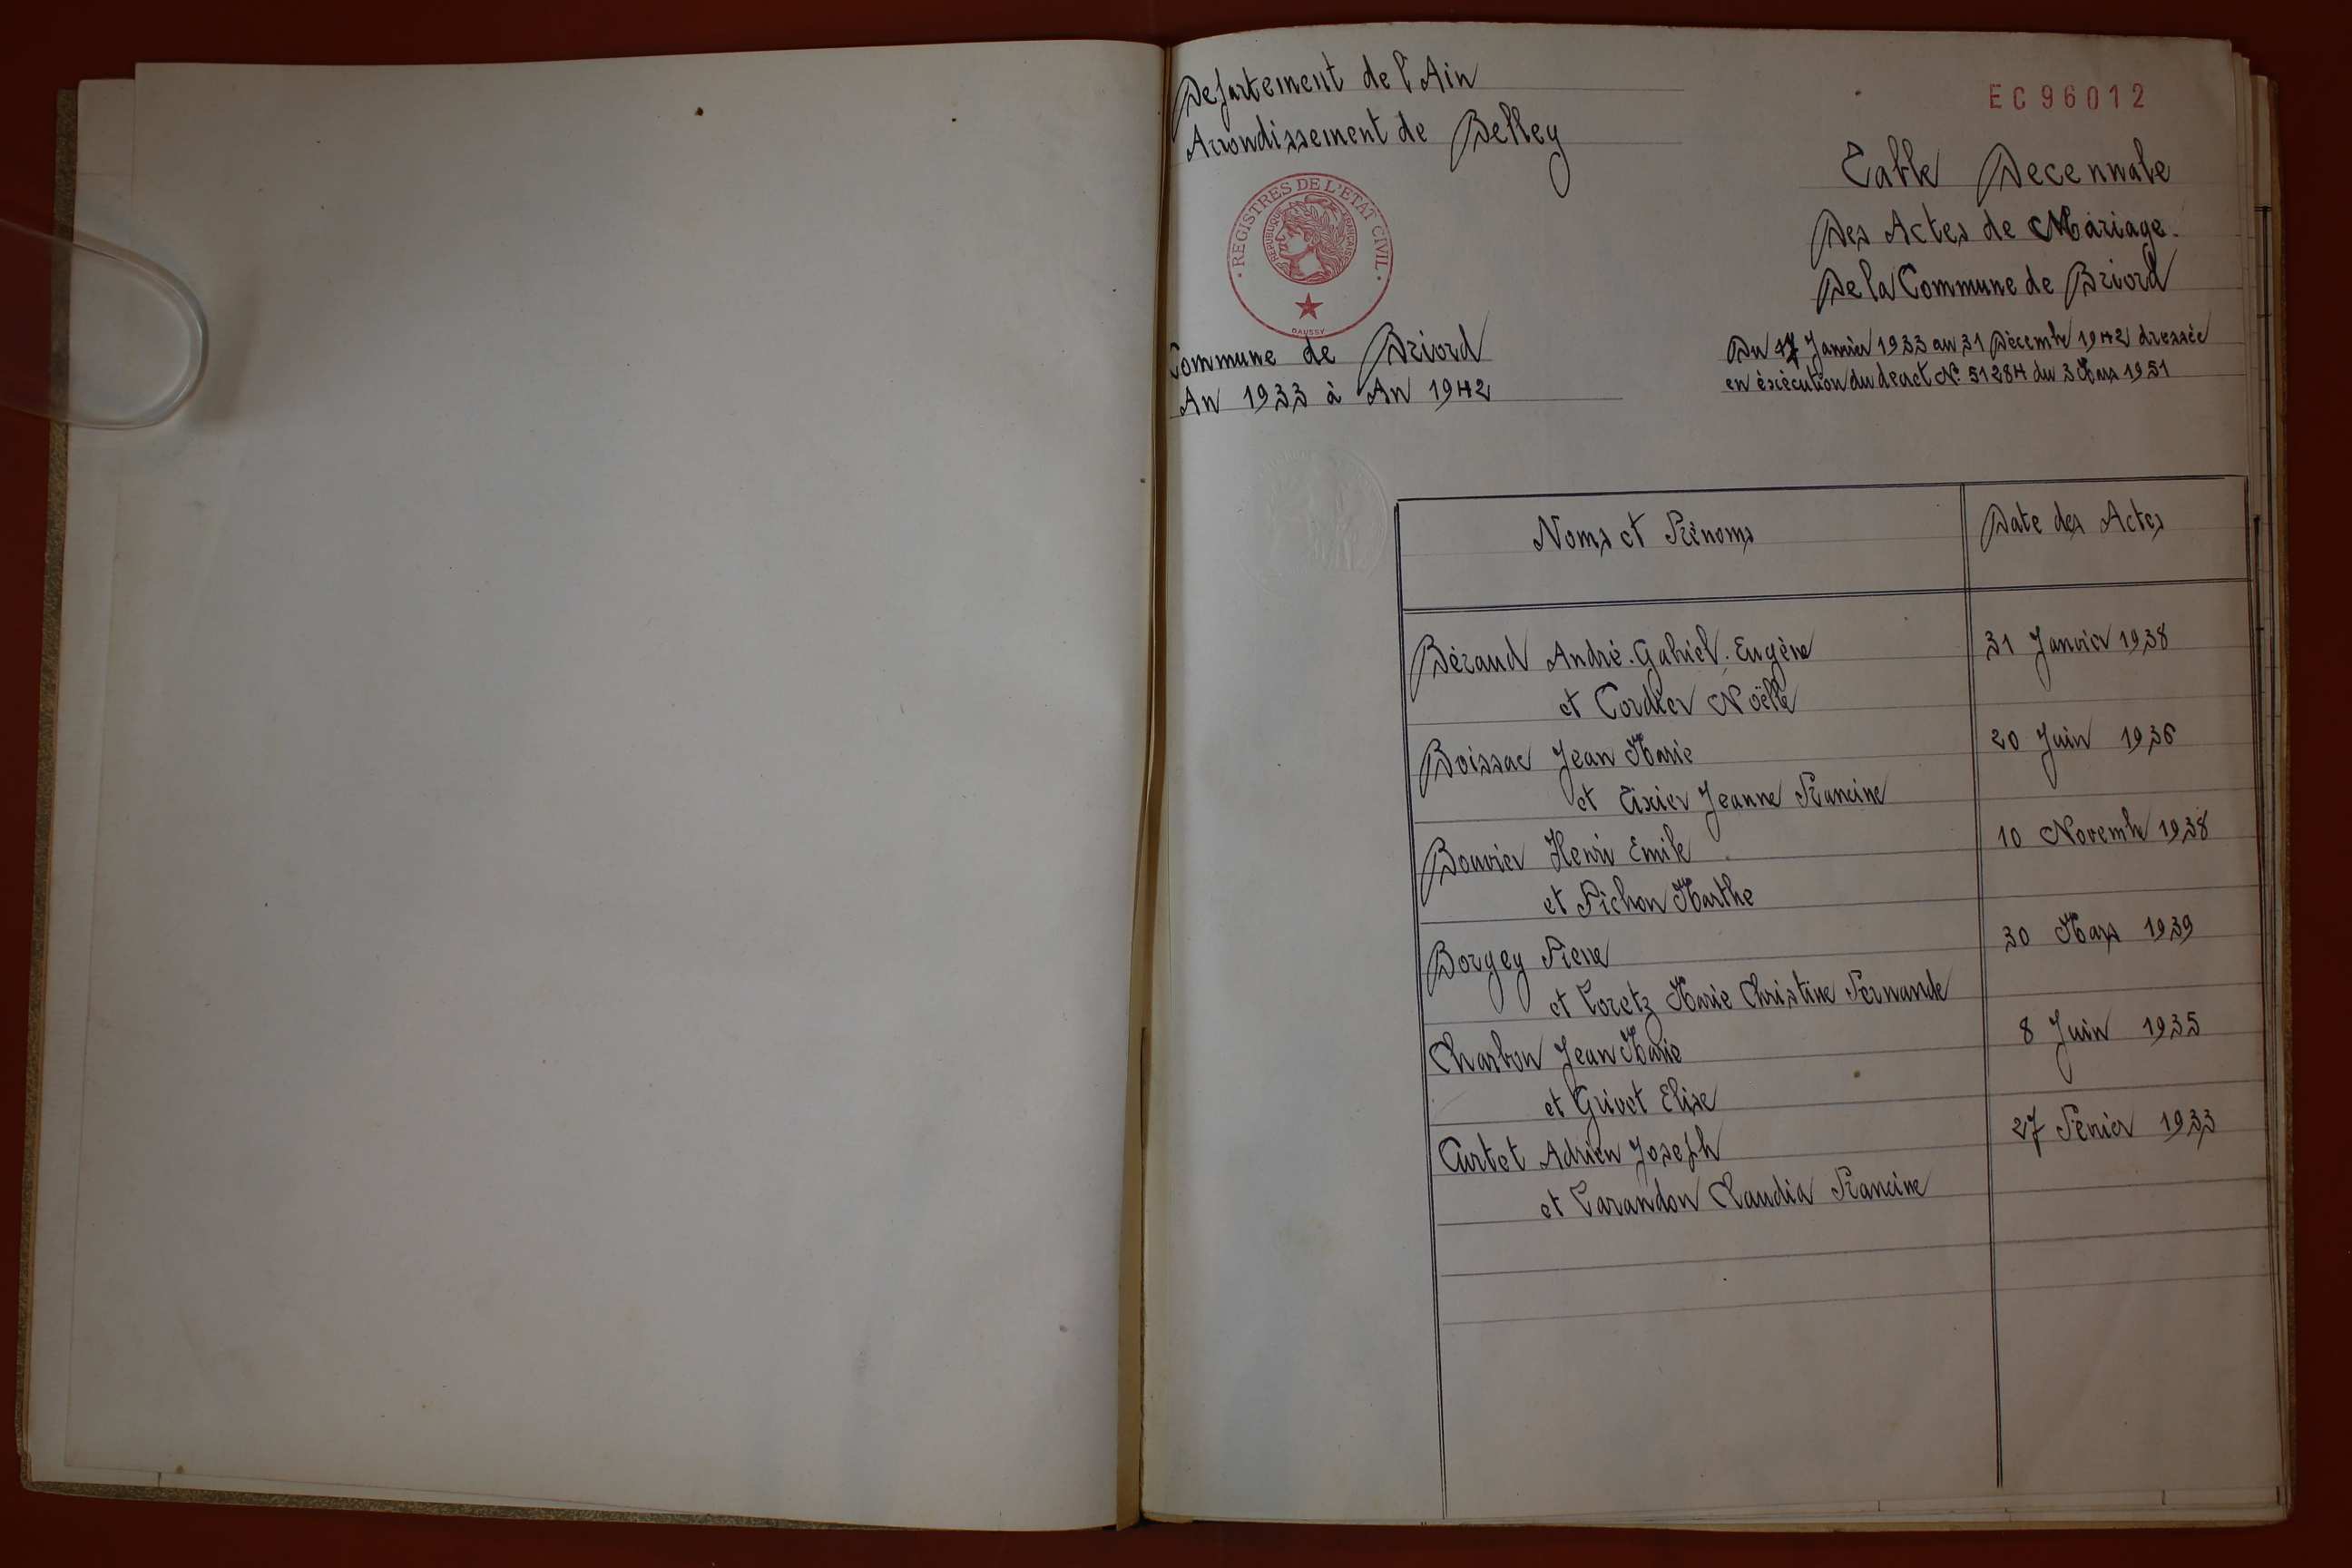 Departement de l'Ain
Arrondissement de Belley
REGISTRES DE L'ETAT CIVIL
REPUBLIQUE FRANCAISE
DAUSSY
Commune de Briord
An 1933 à An 1942
EC96012
Table Decennale
Des Actes de Mariage.
De la Commune de Briord
Du Janvier 1933 au 31 Décembre 1942 dressée
en éxécution du decret N° 51284 du 3 Mars 1951
Noms et Prénoms Date des Actes
Béraud André.Gabriel.Eugène 31 Janvier 1938
et Cordier Noëlle
Boissac Jean Marie 20 Juin 1936
et Tixier Jeanne Francine
Bouvier Henri Emile 10 Novembre 1938
et Pichon Marthe
Borgey Pierre 30 Mars 1939
et Loretz Marie Christine Fernande
Charbon Jean Marie 8 Juin 1935
et Grivet Elise
Curtet Adrien Joseph 27 Février 1933
et Varandon Claudia Francine